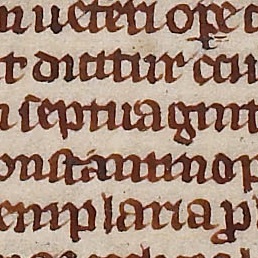 n ueteri ope
t dicitur
n septuagint
onstantinop
emplaria p